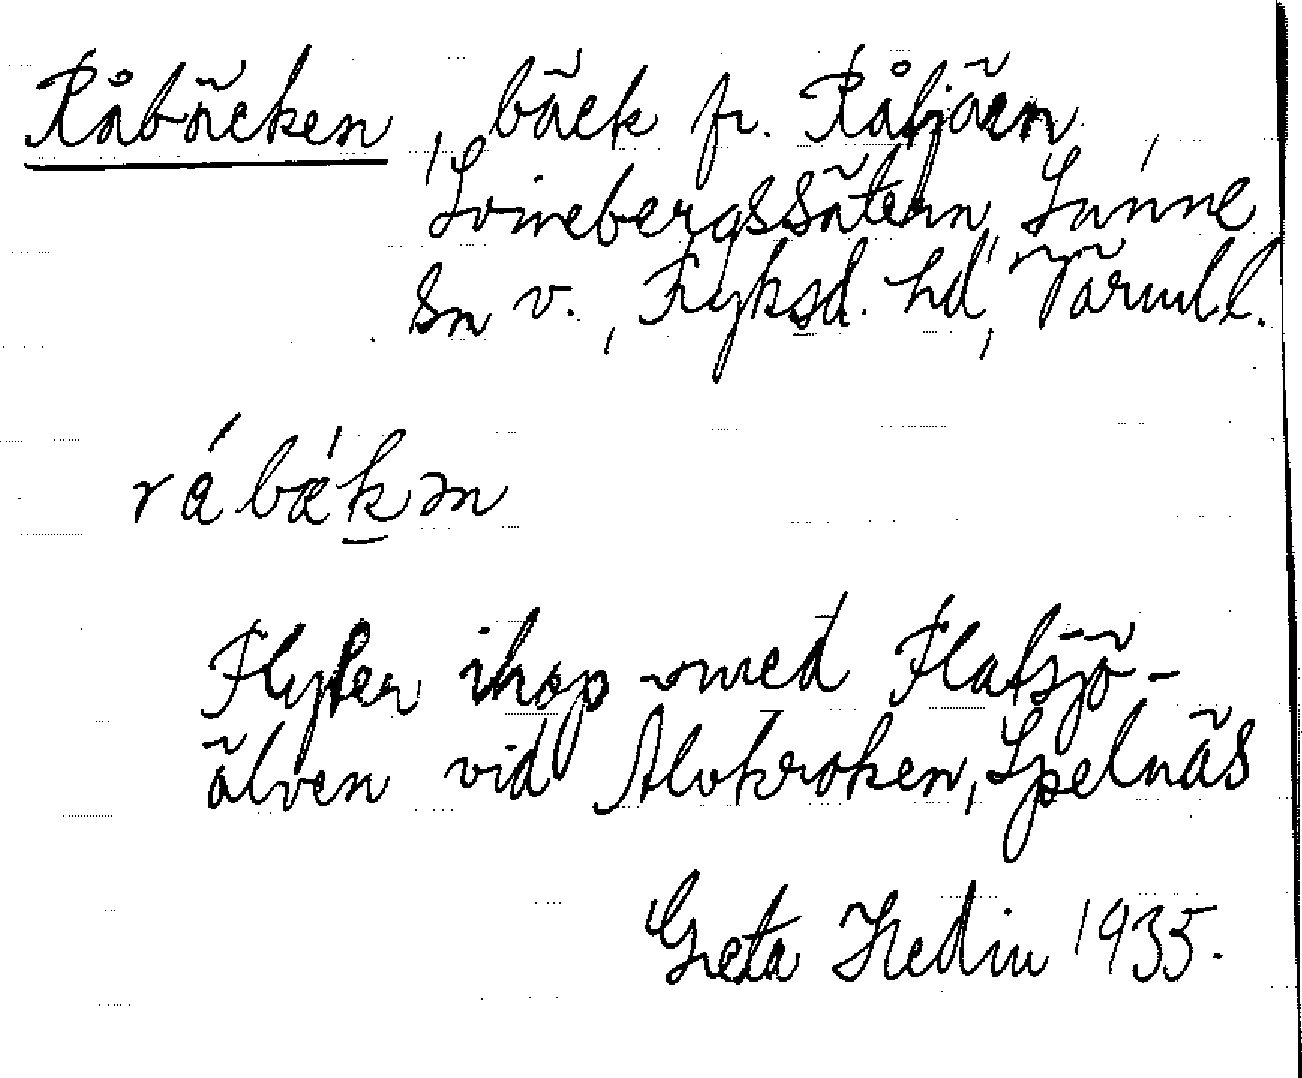 Råbäcken, bäck fr. Råtjärn,
Svinebergssätern, Sunne
sn v., Fryksd. hd, Värml l.
rábǽkən
Flyter ihop med Flatsjö-
älven vid Alvkroken, Spelnäs
Greta Hedin 1935.